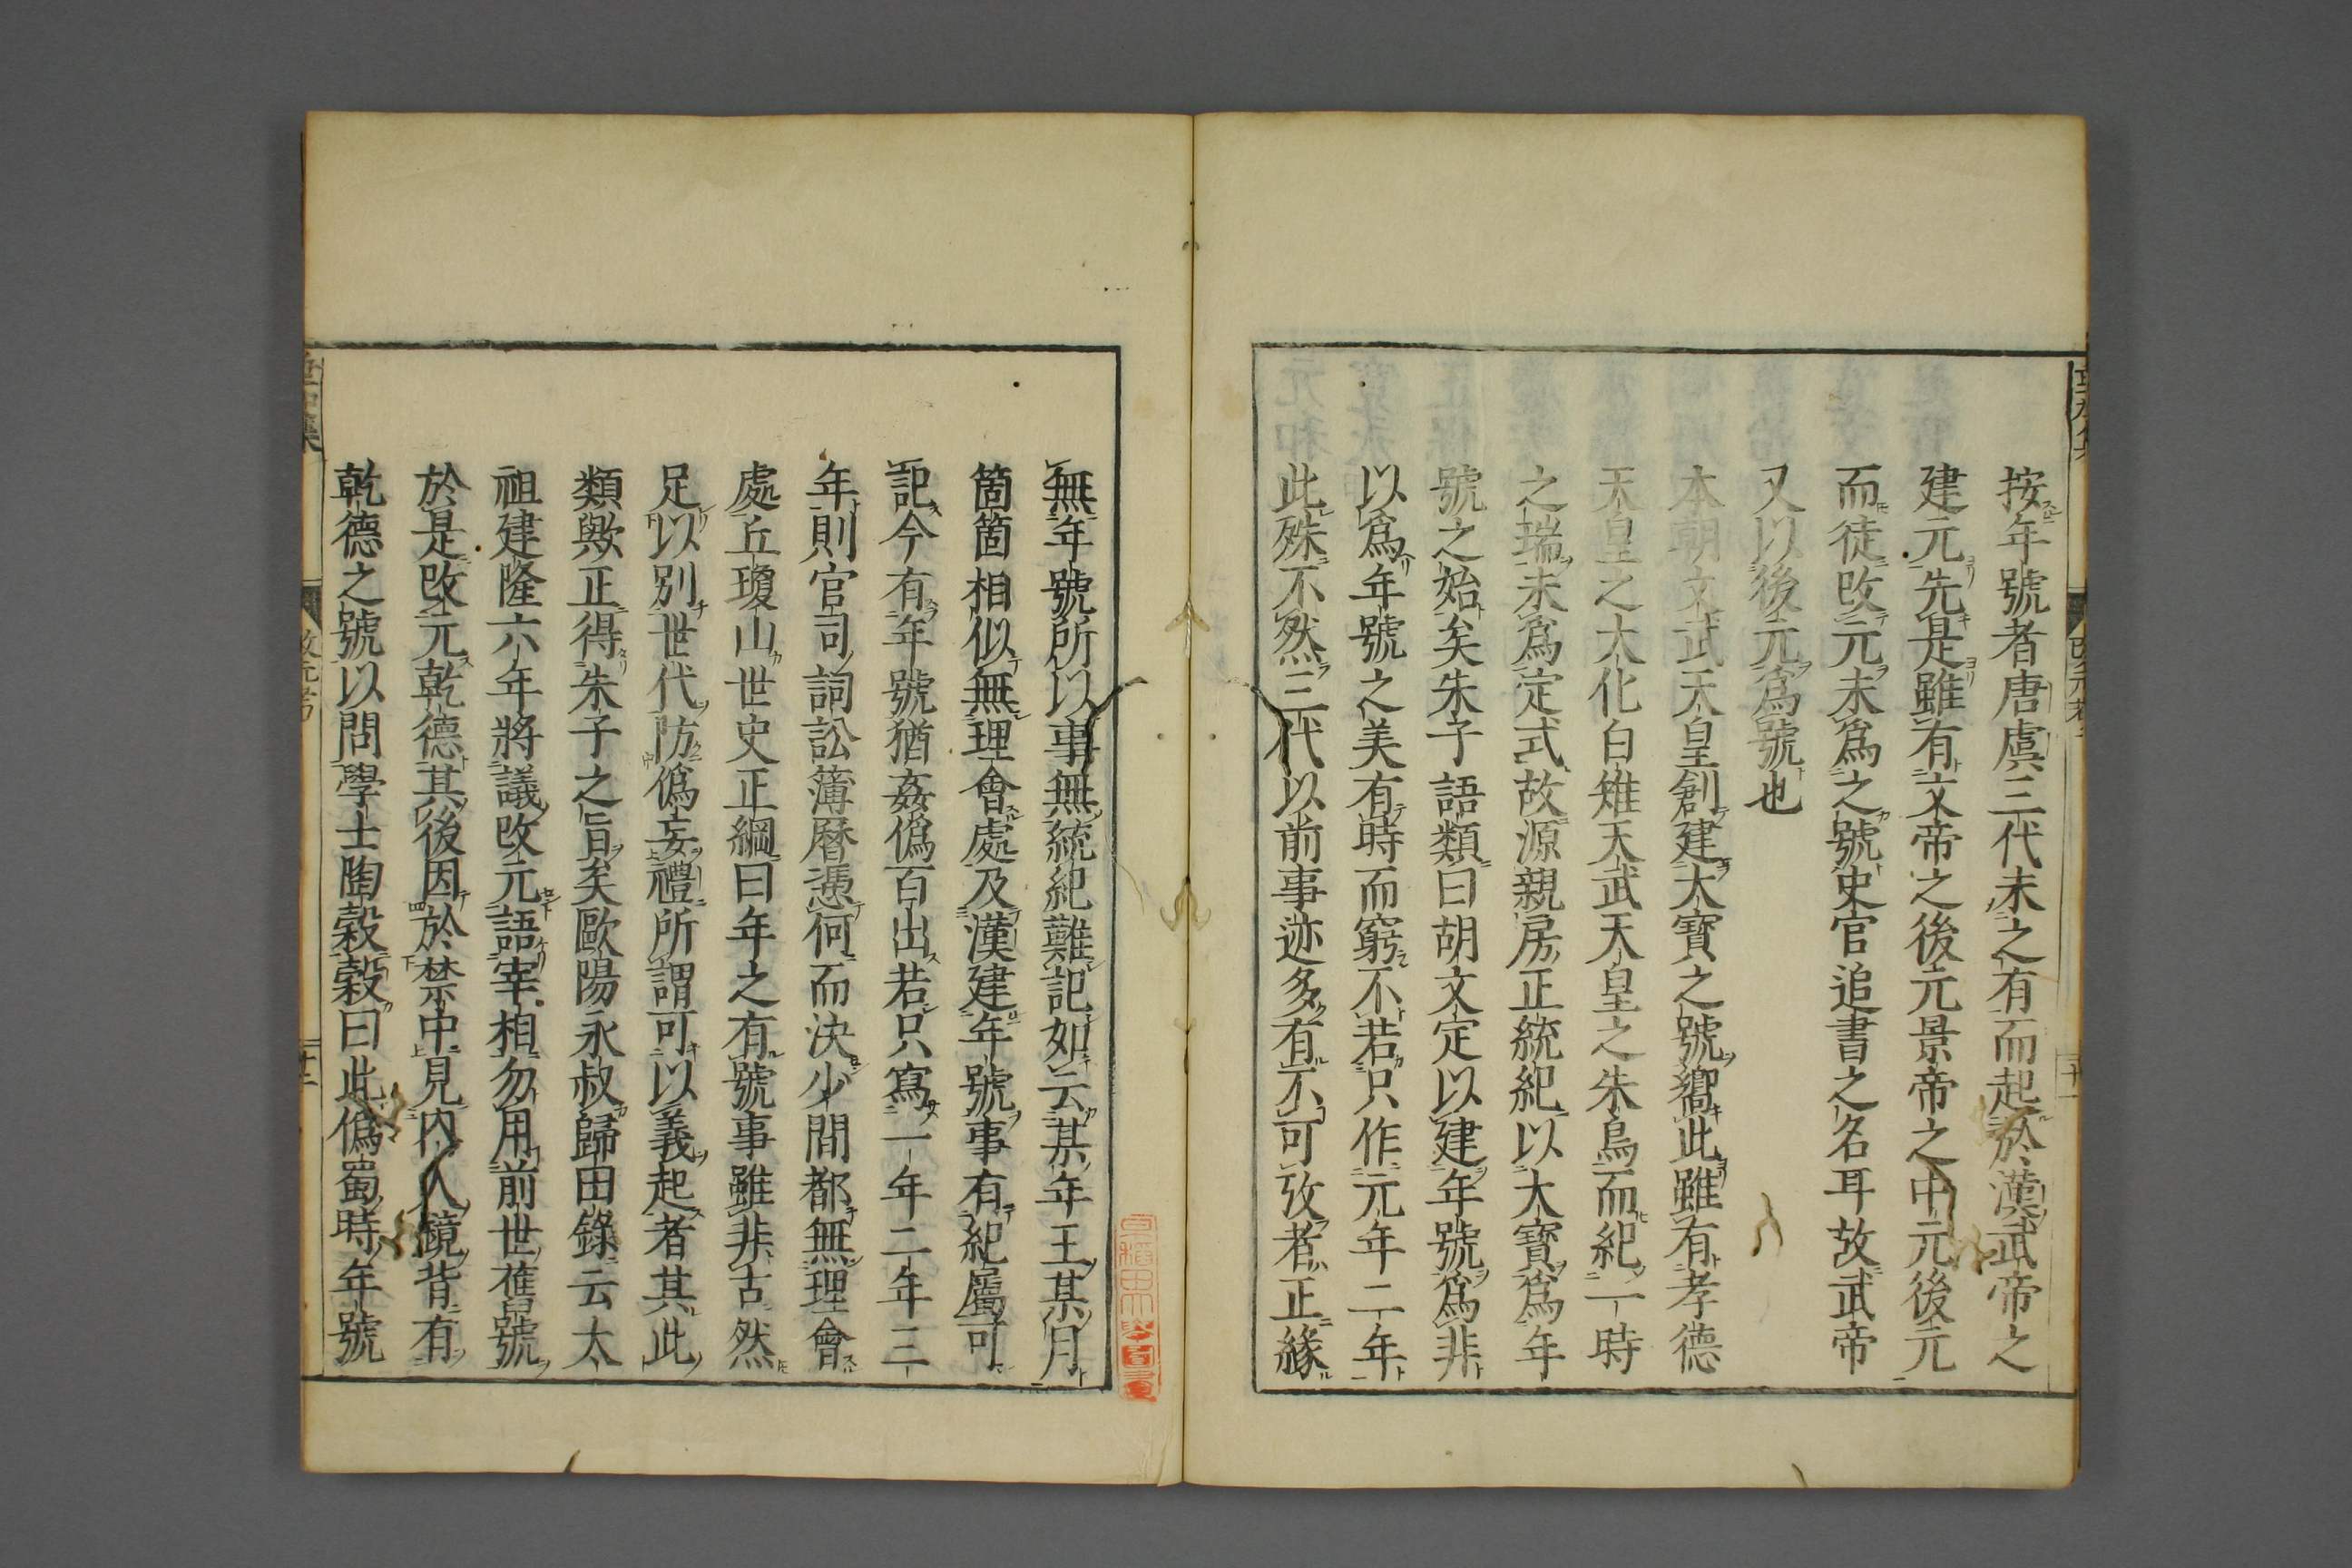 按年號者唐虞三代未之有而起於漢武帝之
建元先是雖有文帝之後元景帝之中元後元
而徒改元未爲之號史官追書之名耳故武帝
又以後元爲號也
本朝文武天皇創建大寶之號嚮此雖有孝德
天皇之大化白雉天武天皇之朱鳥而紀一時
之瑞未爲定式故源親房正統紀以大寶爲年
號之始矣朱子語類曰胡文定以建年號爲非
以爲年號之美有時而窮不若只作元年二年
此殊不然三代以前事迹多有不可攷者正緣
無年號所以事無統紀難記如云某年王某月
箇箇相似無理會處及漢建年號事有紀屬可
記今有年號猶姦僞百出若只寫一年二年三
年則官司詞訟簿曆憑何而決少間都無理會
處丘瓊山世史正綱曰年之有號事雖非古然
足以別世代防僞妄禮所謂可以義起者其此
類歟正得朱子之旨矣歐陽永叔歸田錄云太
祖建隆六年將議改元語宰相勿用前世舊號
於是改元乾德其後因於禁中見內人鏡背有
乾德之號以問學士陶穀穀曰此僞蜀時年號
改元考